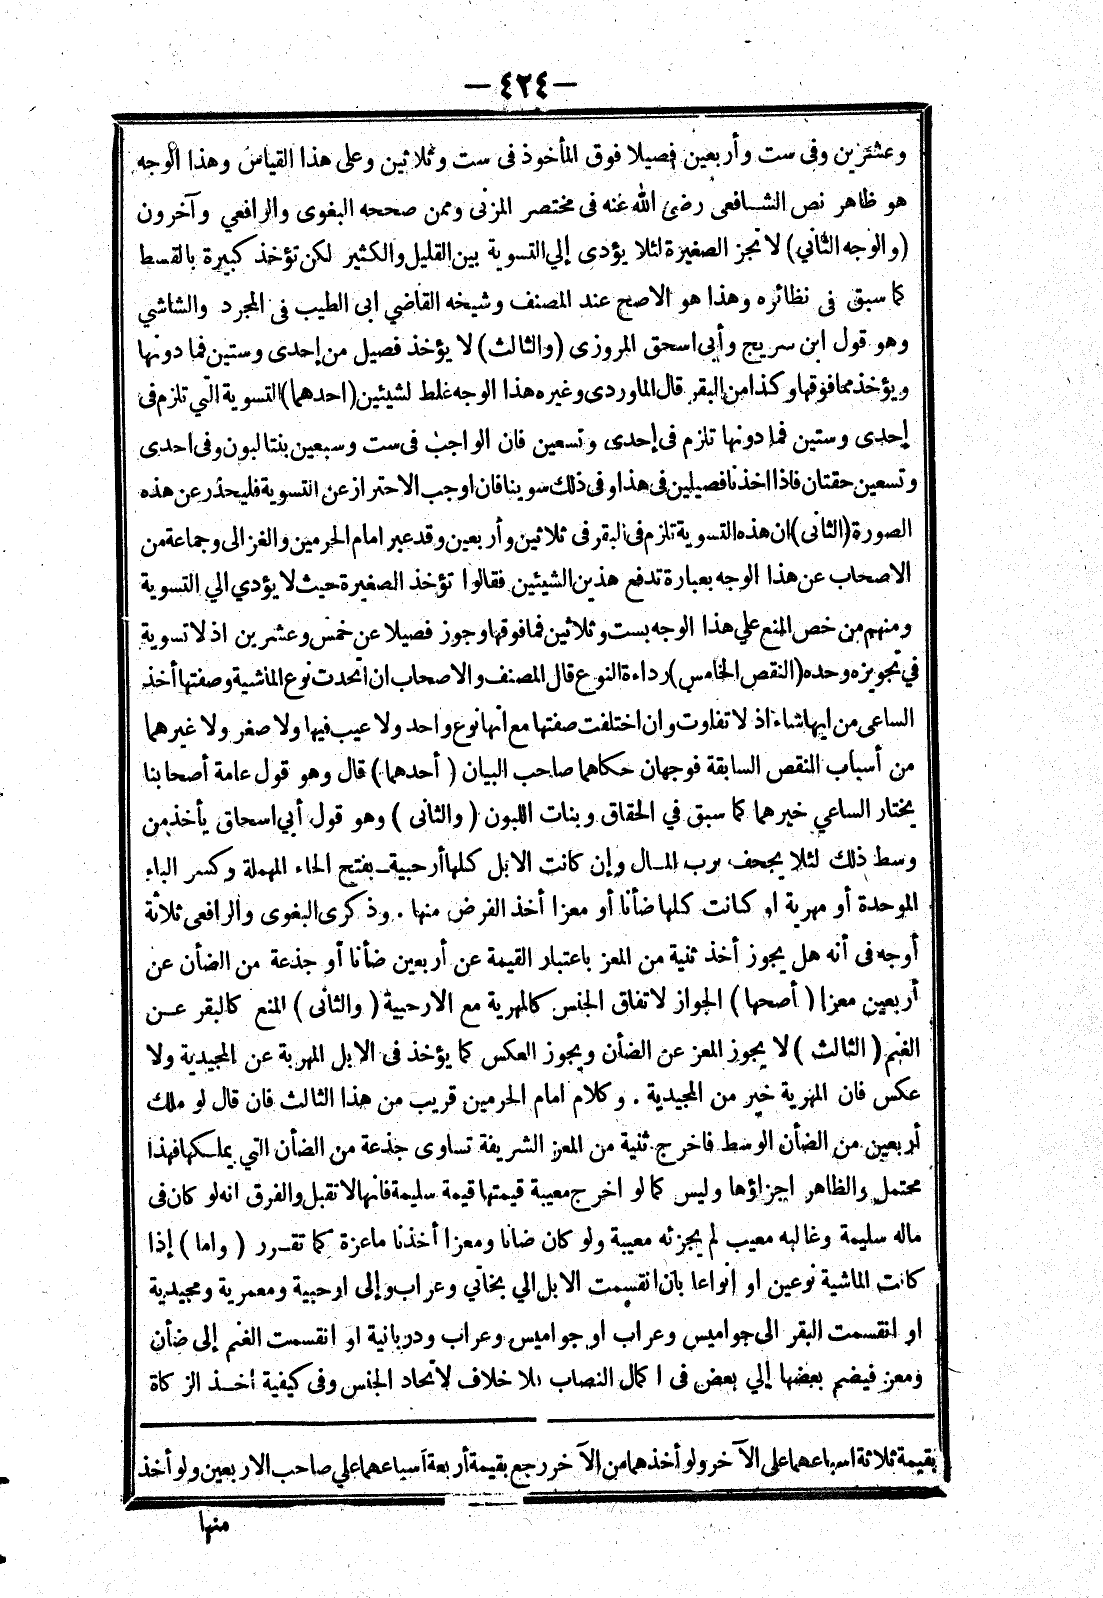 — ٤٢٤ —
وعشرين وفى ست وأربعين فصيلا فوق المأخوذ فى ست وثلاثين وعلى هذا القياس وهذا الوجه
هو ظاهر نص الشافعى رضى الله عنه فى مختصر المزنى وممن صححه البغوى والرافعي وآخرون
(والوجه الثاني) لا تجز الصغيرة لئلا يؤدى إلي التسوية بين القليل والكثير لكن تؤخذ كبيرة بالقسط
كما سبق فى نظائره وهذا هو الاصح عند المصنف وشيخه القاضي ابى الطيب فى المجرد والشاشي
وهو قول ابن سريج وأبى اسحق المروزى (والثالث) لا يؤخذ فصيل من إحدى وستين فما دونها
ويؤخذ مما فوقها وكذا من البقر قال الماوردى وغيره هذا الوجه غلط لشيئين (احدهما) التسوية التي تلزم فى
إحدى وستين فما دونها تلزم فى إحدى وتسعين فان الواجب فى ست وسبعين بنتا لبون وفى احدى
وتسعين حقتان فاذا اخذنا فصيلين فى هذا وفى ذلك سوينا فان اوجب الاحتراز عن التسوية فليحذر عن هذه
الصورة (الثانى) ان هذه التسوية تلزم فى البقر فى ثلاثين وأربعين وقد عبر امام الحرمين والغزالى وجماعة من
الاصحاب عن هذا الوجه بعبارة تدفع هذين الشيئين فقالوا تؤخذ الصغيرة حيث لا يؤدي الي التسوية
ومنهم من خص المنع علي هذا الوجه بست وثلاثين فما فوقها وجوز فصيلا عن خمس وعشرين اذ لا تسوية
في تجويزه وحده (النقص الخامس) رداءة النوع قال المصنف والاصحاب ان اتحدت نوع الماشية وصفتها أخذ
الساعى من ايها شاء اذ لا تفاوت وان اختلفت صفتها مع انها نوع واحد ولا عيب فيها ولا صغر ولا غيرهما
من أسباب النقص السابقة فوجهان حكاهما صاحب البيان (أحدهما) قال وهو قول عامة أصحابنا
يختار الساعي خيرهما كما سبق في الحقاق وبنات اللبون (والثانى) وهو قول أبي اسحاق يأخذ من
وسط ذلك لئلا يجحف برب المال وإن كانت الابل كلها أرحبية بفتح الحاء المهملة وكسر الباء
الموحدة أو مهرية او كانت كلها ضأنا أو معزا أخذ الفرض منها . وذكرى البغوى والرافعى ثلاثة
أوجه فى أنه هل يجوز أخذ ثنية من المعز باعتبار القيمة عن أربعين ضأنا أو جذعة من الضأن عن
أربعين معزا (أصحها) الجواز لاتفاق الجنس كالمهرية مع الارحبية (والثانى) المنع كالبقر عن
الغنم (الثالث) لا يجوز المعز عن الضأن ويجوز العكس كما يؤخذ فى الابل المهرية عن المجيدية ولا
عكس فان المهرية خير من المجيدية . وكلام امام الحرمين قريب من هذا الثالث فان قال لو ملك
أربعين من الضأن الوسط فاخرج ثنية من المعز الشريفة تساوى جذعة من الضأن التي يملكها فهذا
محتمل والظاهر اجزاؤها وليس كما لو اخرج معيبة قيمتها قيمة سليمة فانها لا تقبل والفرق انه لو كان فى
ماله سليمة وغالبه معيب لم يجزئه معيبة ولو كان ضانا ومعزا أخذنا ماعزة كما تقرر (واما) إذا
كانت الماشية نوعين او انواعا بان انقسمت الابل الي بخاتي وعراب وإلى ارحبية ومعمرية ومجيدية
او انقسمت البقر الى جواميس وعراب او جواميس وعراب ودربانية او انقسمت الغنم إلى ضأن
ومعز فيضم بعضها إلي بعض فى اكمال النصاب بلا خلاف لاتحاد الجنس وفى كيفية أخذ الزكاة
بقيمة ثلاثة اسباعهما على الآخر ولو أخذهما من الآخر رجع بقيمة أربعة أسباعهما علي صاحب الاربعين ولو أخذ
منها